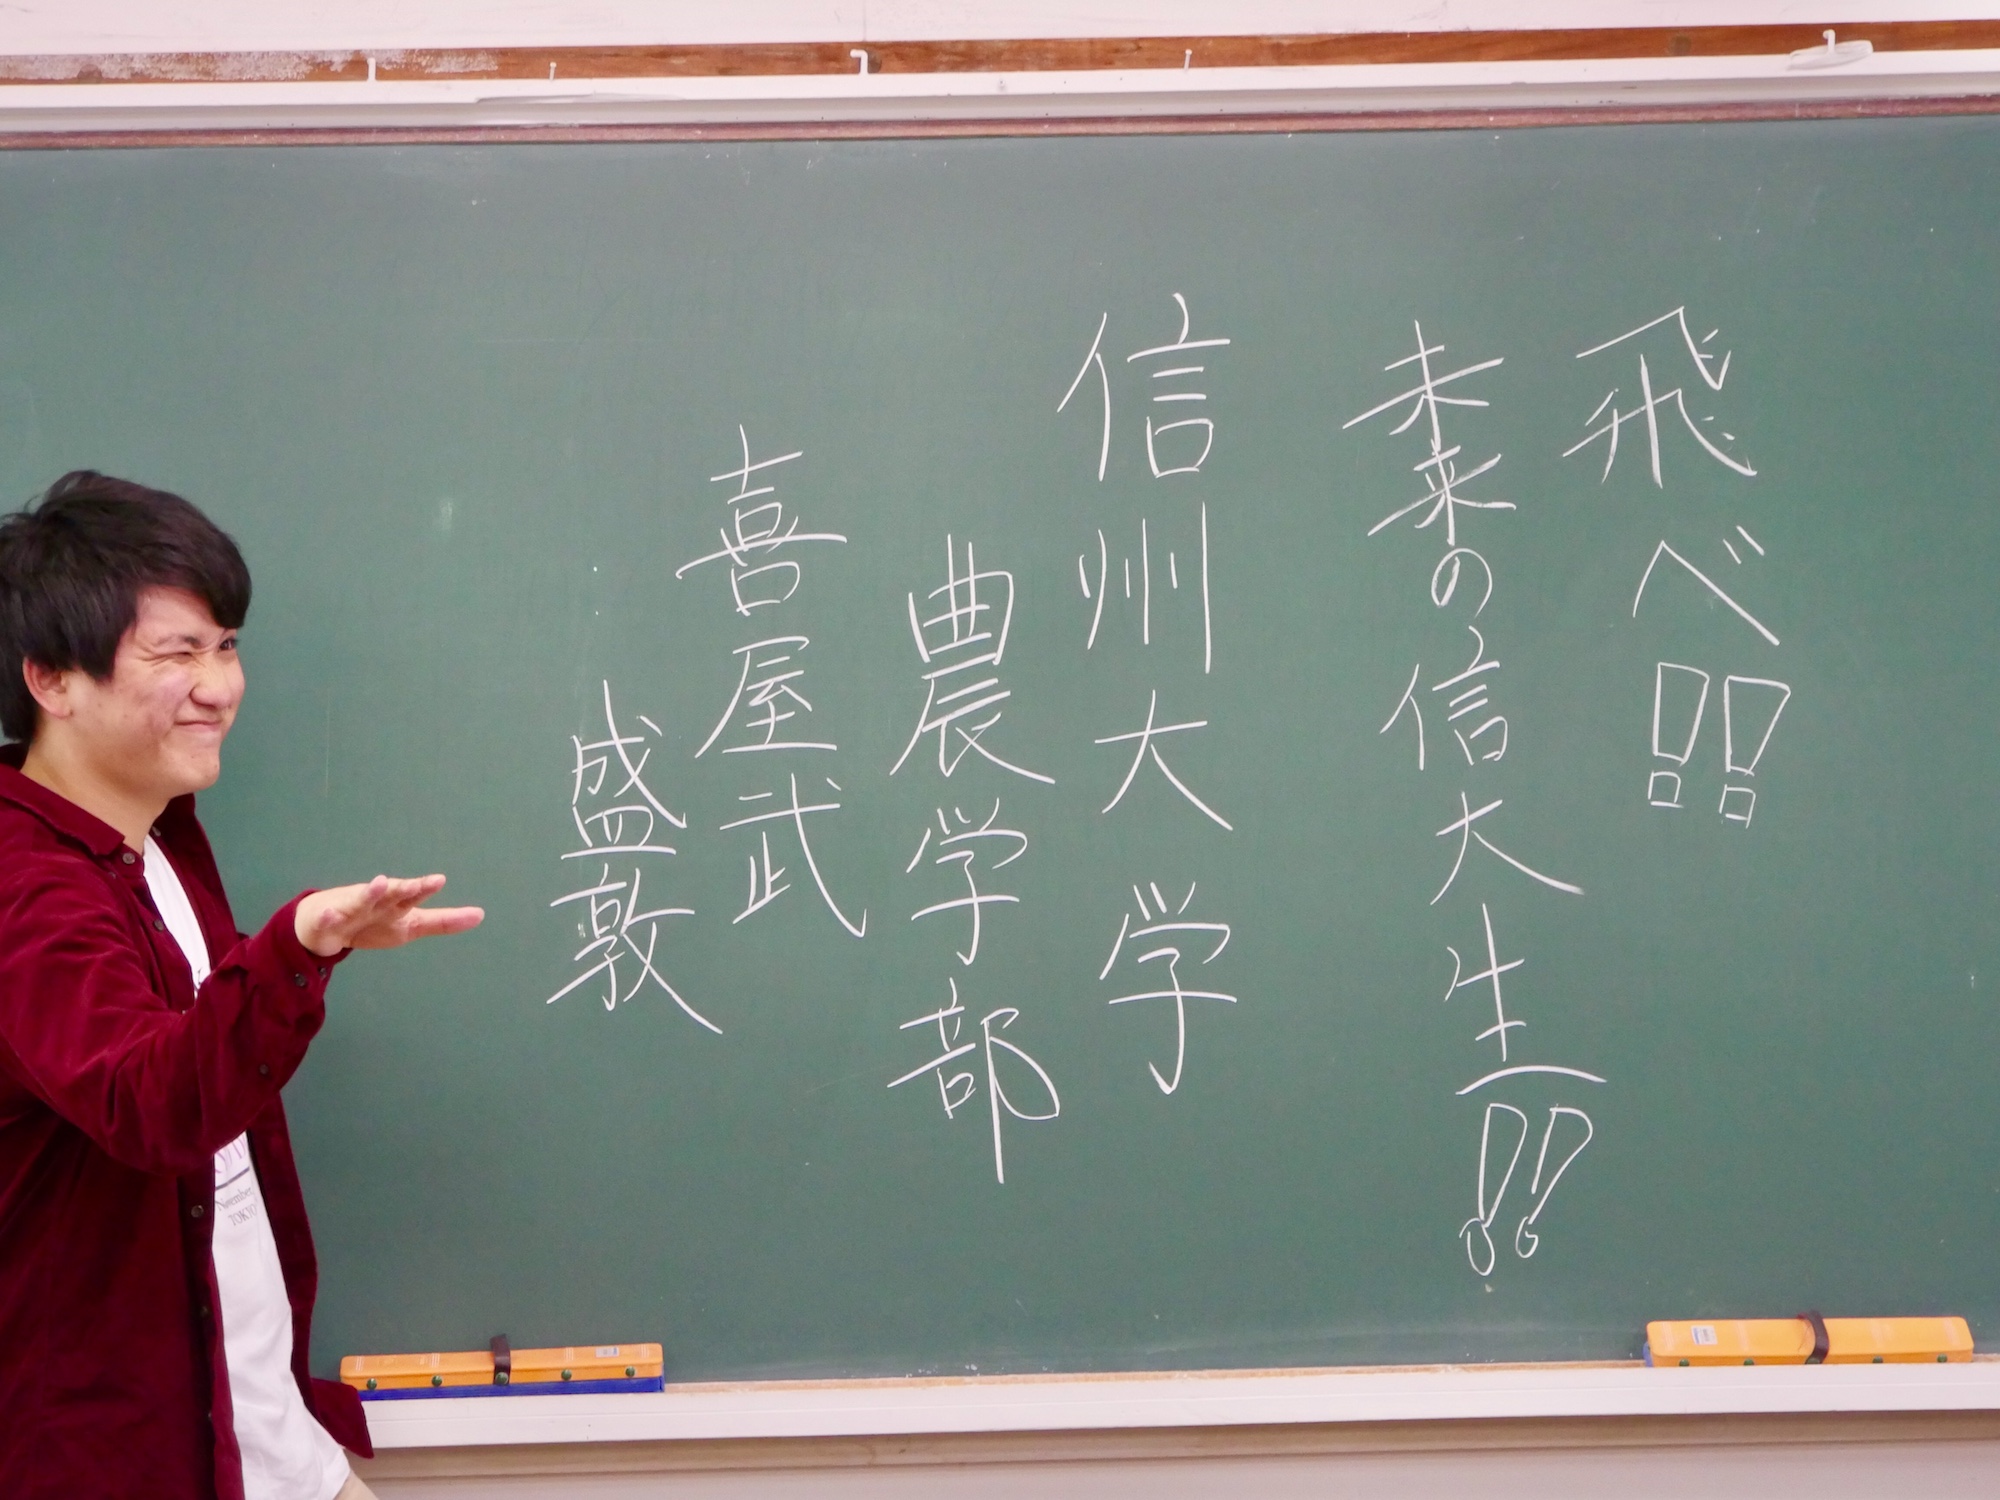 飛べ!!
未来の信大生!!
信州大学
農学部
喜屋武
盛敦
November,
TOKYO